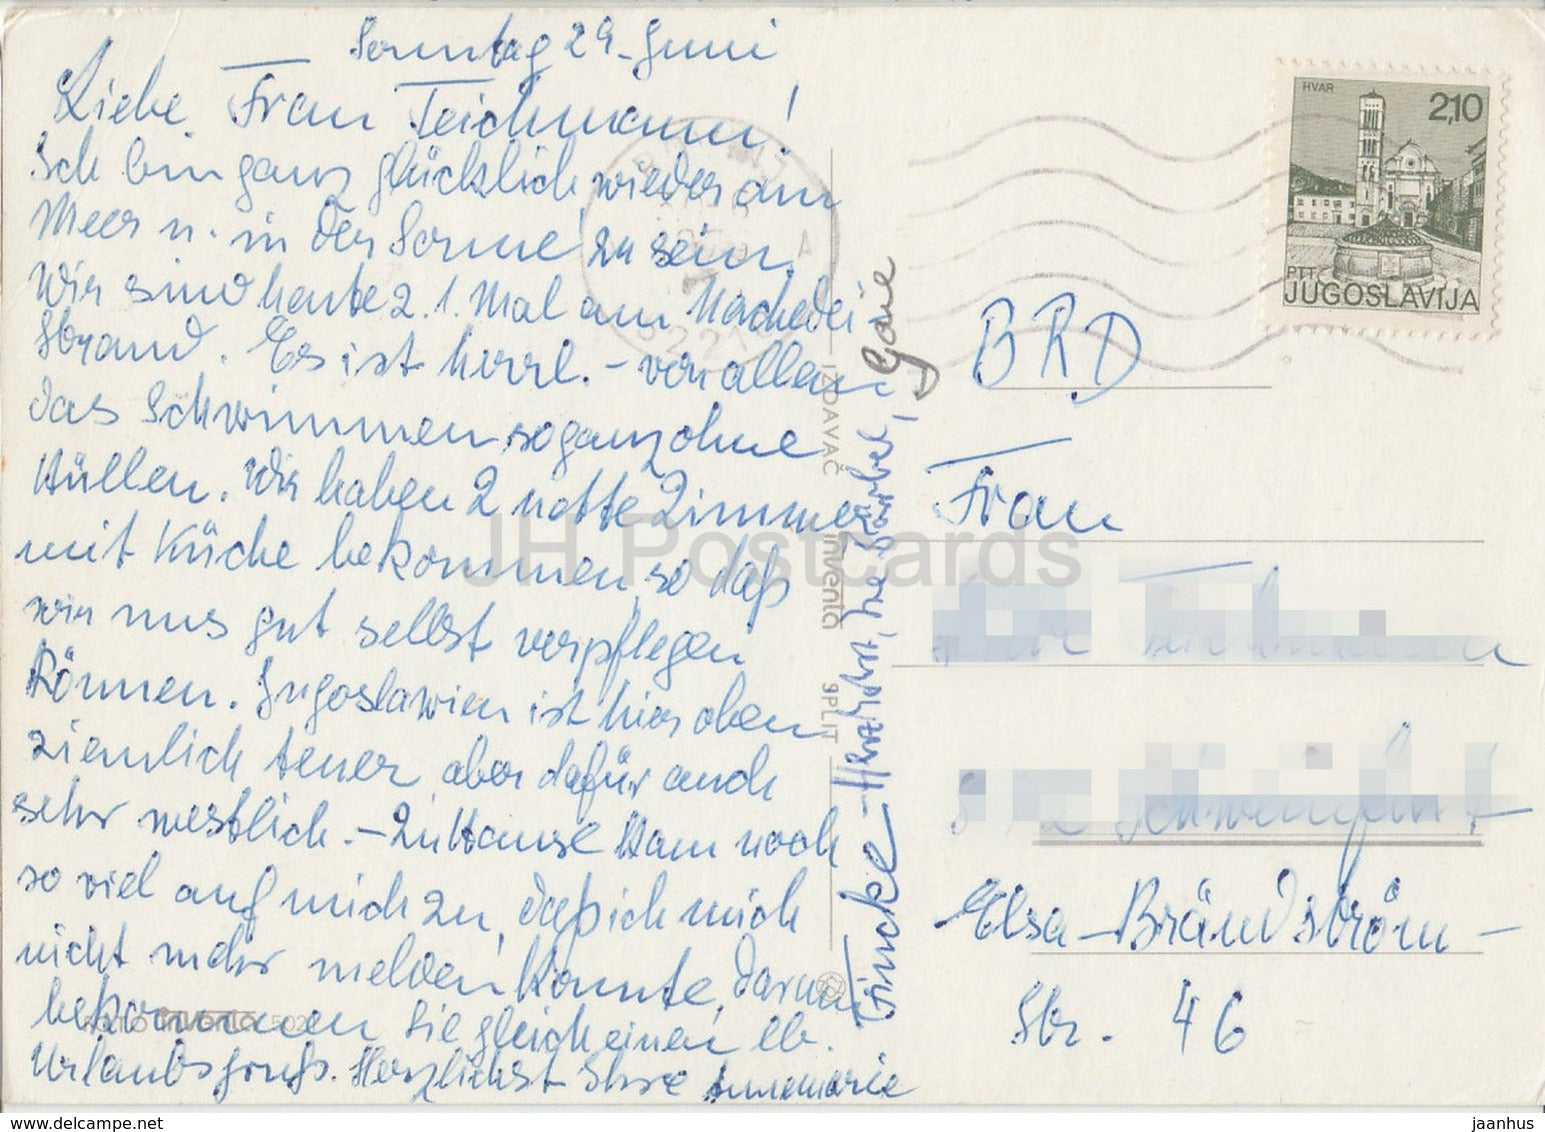 Sonntag 29. Juni
Liebe Frau Teichmann!
Ich bin ganz glücklich, wieder am
Meer u. in der Sonne zu sein.
Wir sind heute z. 1. Mal am Nackedei
Strand. Es ist herrl. – vor allem
das Schwimmen so ganz ohne
Hüllen. Wir haben 2 nette Zimmer
mit Küche bekommen, so daß
wir uns gut selbst verpflegen
können. Jugoslawien ist hier oben
ziemlich teuer aber dafür auch
sehr westlich. – Zu Hause kam noch
so viel auf mich zu, daß ich mich
nicht mehr melden konnte, darum
bekommen Sie gleich einen lb.
Urlaubsgruß. Herzlichst Ihre Annemarie
Fincke – Herzlichst, Ihre Bärbel,
HVAR
2,10
PTT
JUGOSLAVIJA
BRD
Frau
Elsa-Brändström-
Str. 46
IZDAVAČ
inventa
SPLIT
FOTO inventa 502
JH Postcards
delcampe.net
jaanhus